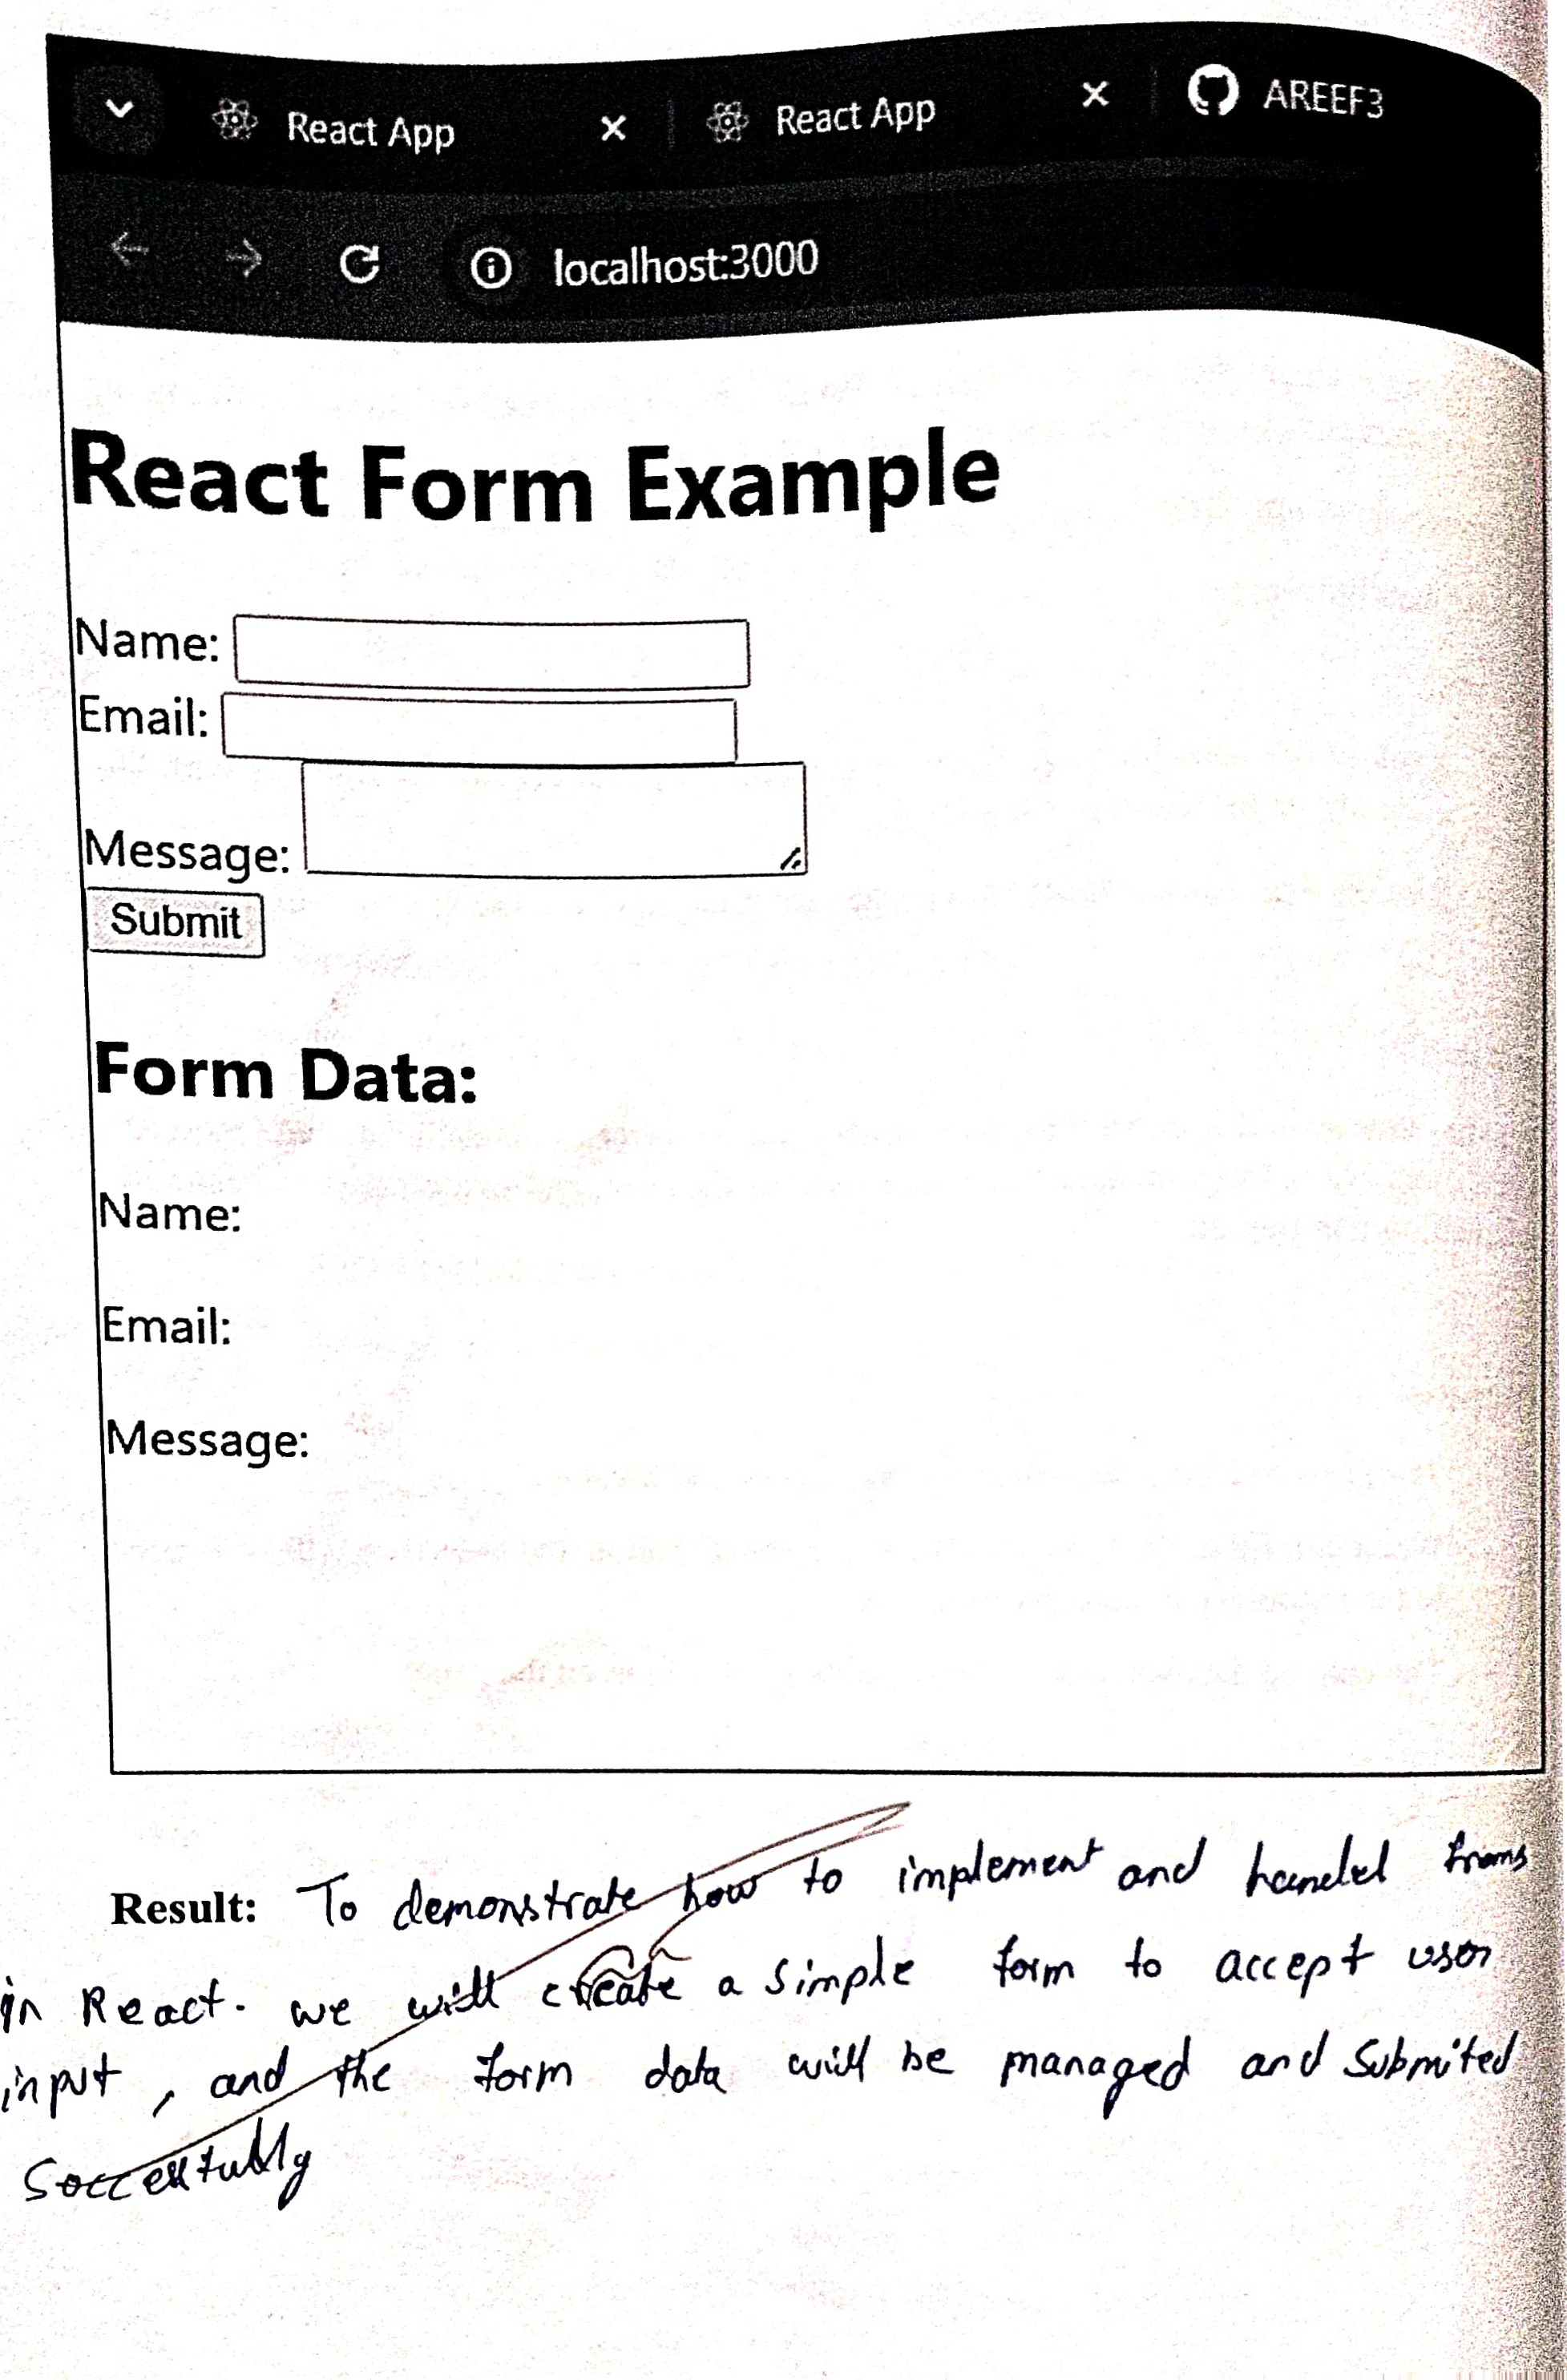 React App × React App × AREEF3
localhost:3000
React Form Example
Name:
Email:
Message:
Submit
Form Data:
Name:
Email:
Message:
Result: To demonstrate how to implement and handel
in React. we will create a simple form to accept user
input, and the form data will be managed and Submited